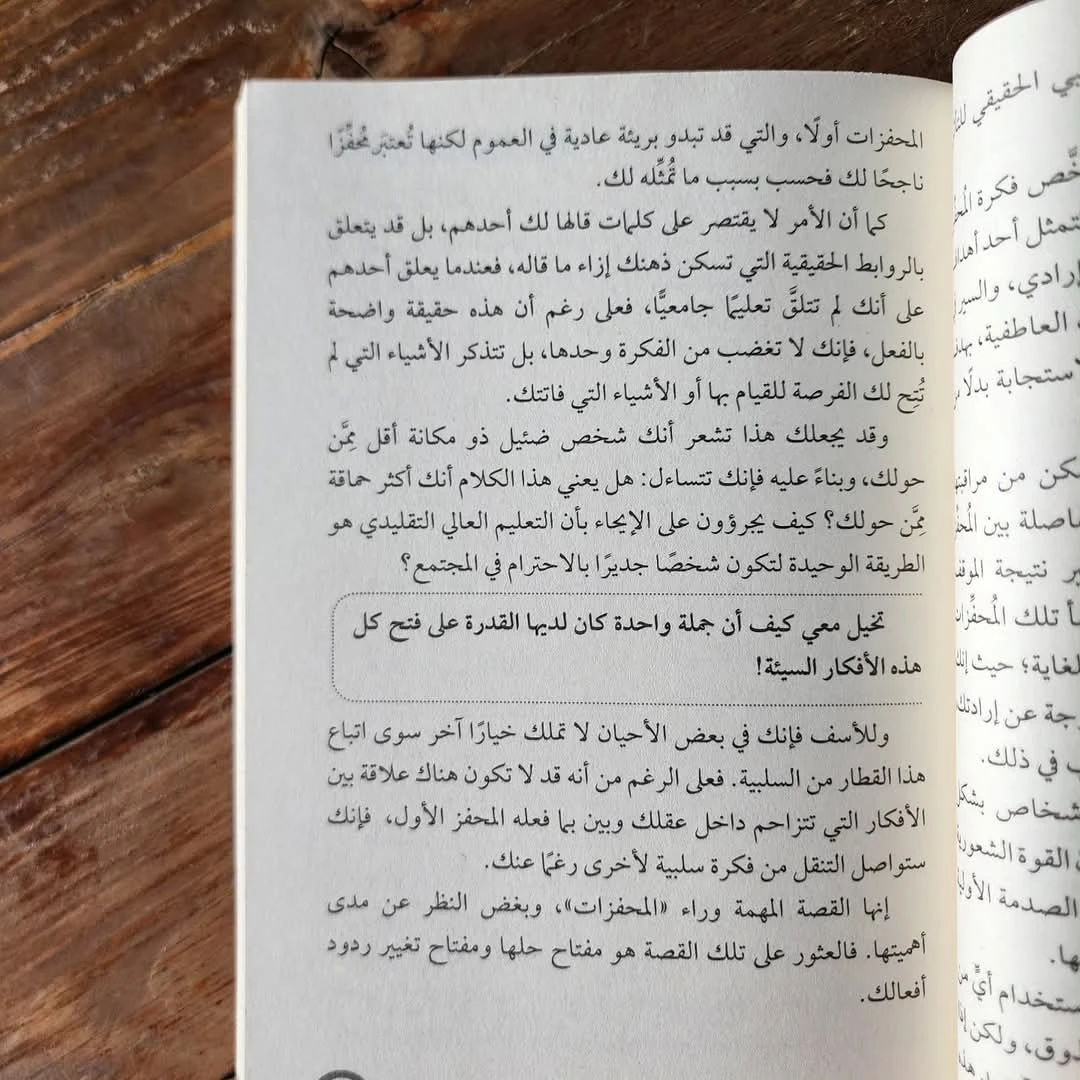 المحفزات أولًا، والتي قد تبدو بريئة عادية في العموم لكنها تُعتبَر مُحفِّزًا
ناجحًا لك فحسب بسبب ما تُمثِّله لك.
كما أن الأمر لا يقتصر على كلمات قالها لك أحدهم، بل قد يتعلق
بالروابط الحقيقية التي تسكن ذهنك إزاء ما قاله، فعندما يعلق أحدهم
على أنك لم تتلقَّ تعليمًا جامعيًّا، فعلى رغم أن هذه حقيقة واضحة
بالفعل، فإنك لا تغضب من الفكرة وحدها، بل تتذكر الأشياء التي لم
تُتِح لك الفرصة للقيام بها أو الأشياء التي فاتتك.
وقد يجعلك هذا تشعر أنك شخص ضئيل ذو مكانة أقل مِمَّن
حولك، وبناءً عليه فإنك تتساءل: هل يعني هذا الكلام أنك أكثر حماقة
مِمَّن حولك؟ كيف يجرؤون على الإيحاء بأن التعليم العالي التقليدي هو
الطريقة الوحيدة لتكون شخصًا جديرًا بالاحترام في المجتمع؟
تخيل معي كيف أن جملة واحدة كان لديها القدرة على فتح كل
هذه الأفكار السيئة!
وللأسف فإنك في بعض الأحيان لا تملك خيارًا آخر سوى اتباع
هذا القطار من السلبية. فعلى الرغم من أنه قد لا تكون هناك علاقة بين
الأفكار التي تتزاحم داخل عقلك وبين بما فعله المحفز الأول، فإنك
ستواصل التنقل من فكرة سلبية لأخرى رغمًا عنك.
إنها القصة المهمة وراء «المحفزات»، وبغض النظر عن مدى
أهميتها. فالعثور على تلك القصة هو مفتاح حلها ومفتاح تغيير ردود
أفعالك.
الحقيقي
فكرة
يتمثل أحد
والسير
العاطفية،
لاستجابة بدلًا
من مراقبتها
بين
نتيجة الموقف
تلك المُحفِّزات
للغاية؛ حيث إنك
عن إرادتك
في ذلك.
بشكل
القوة الشعورية
الصدمة الأولية
أيٍّ من
ولكن